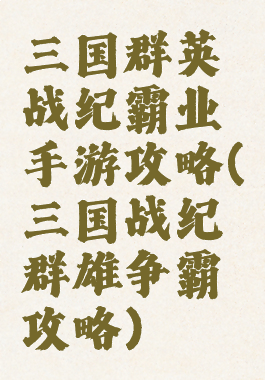 三国群英
战纪霸业
手游攻略(
三国战纪
群雄争霸
攻略)